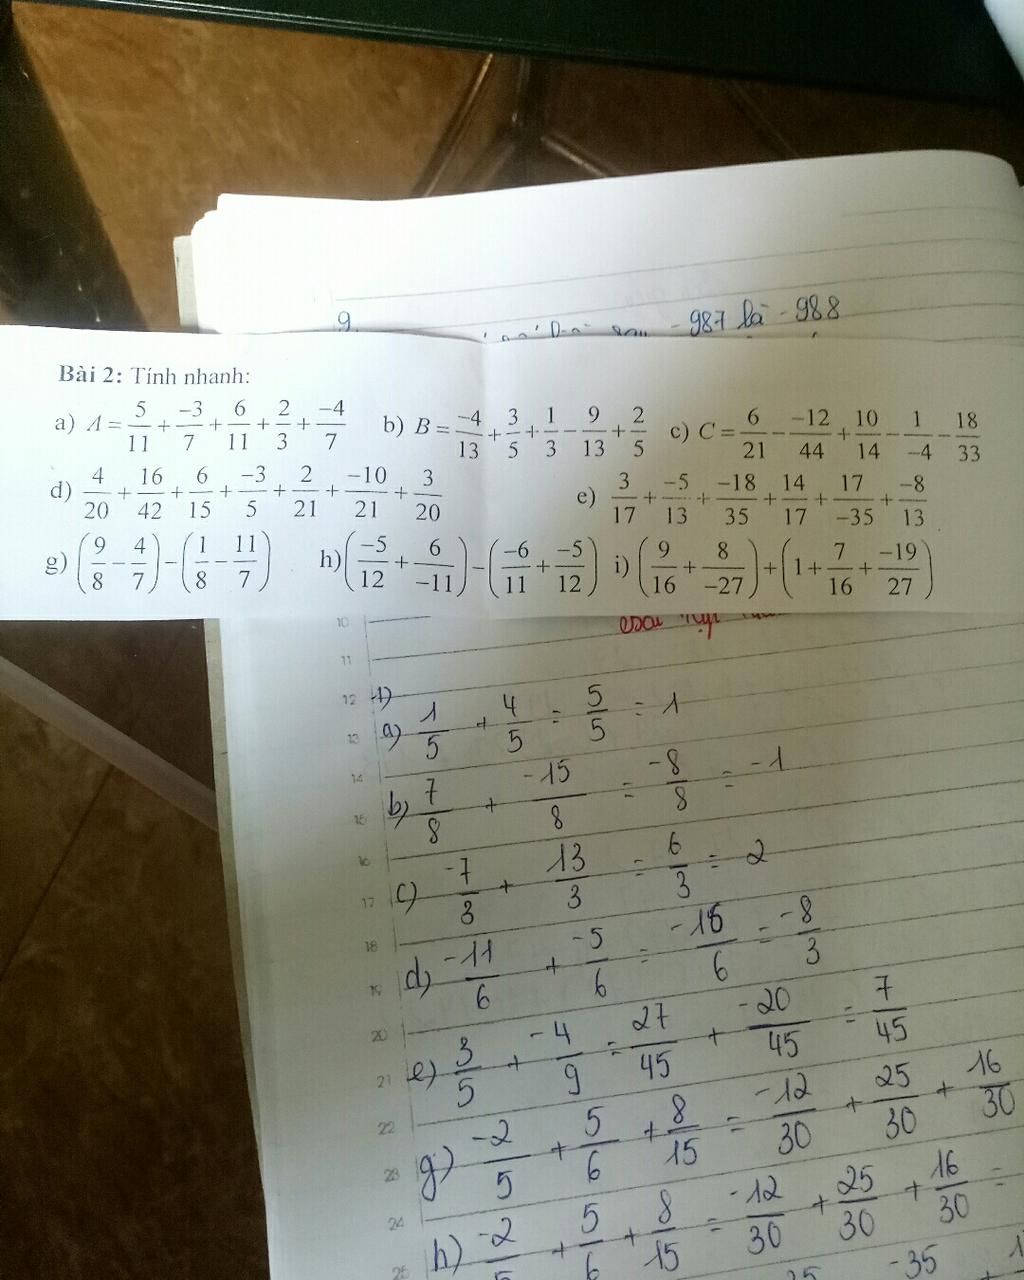 9.
- 987 là - 988
Bài 2: Tính nhanh:
a) A = 5/11 + -3/7 + 6/11 + 2/3 + -4/7 b) B = -4/13 + 3/5 + 1/3 - 9/13 + 2/5 c) C = 6/21 - -12/44 + 10/14 - 1/-4 - 18/33
d) 4/20 + 16/42 + 6/15 + -3/5 + 2/21 + -10/21 + 3/20 e) 3/17 + -5/13 + -18/35 + 14/17 + 17/-35 + -8/13
g) (9/8 - 4/7) - (1/8 - 11/7) h) (-5/12 + 6/-11) - (-6/11 + -5/12) i) (9/16 + 8/-27) + (1 + 7/16 + -19/27)
10
11
12 1)
13 a) 1/5 + 4/5 = 5/5 = 1
14
15 b) 7/8 + -15/8 = -8/8 = -1
16
17 c) -7/3 + 13/3 = 6/3 = 2
18
19 d) -11/6 + -5/6 = -16/6 = -8/3
20
21 e) 3/5 + -4/9 = 27/45 + -20/45 = 7/45
22
23 g) -2/5 + 5/6 + 8/15 = -12/30 + 25/30 + 16/30
24
25 h) -2/5 + 5/6 + 8/15 = -12/30 + 25/30 + 16/30 =
-35